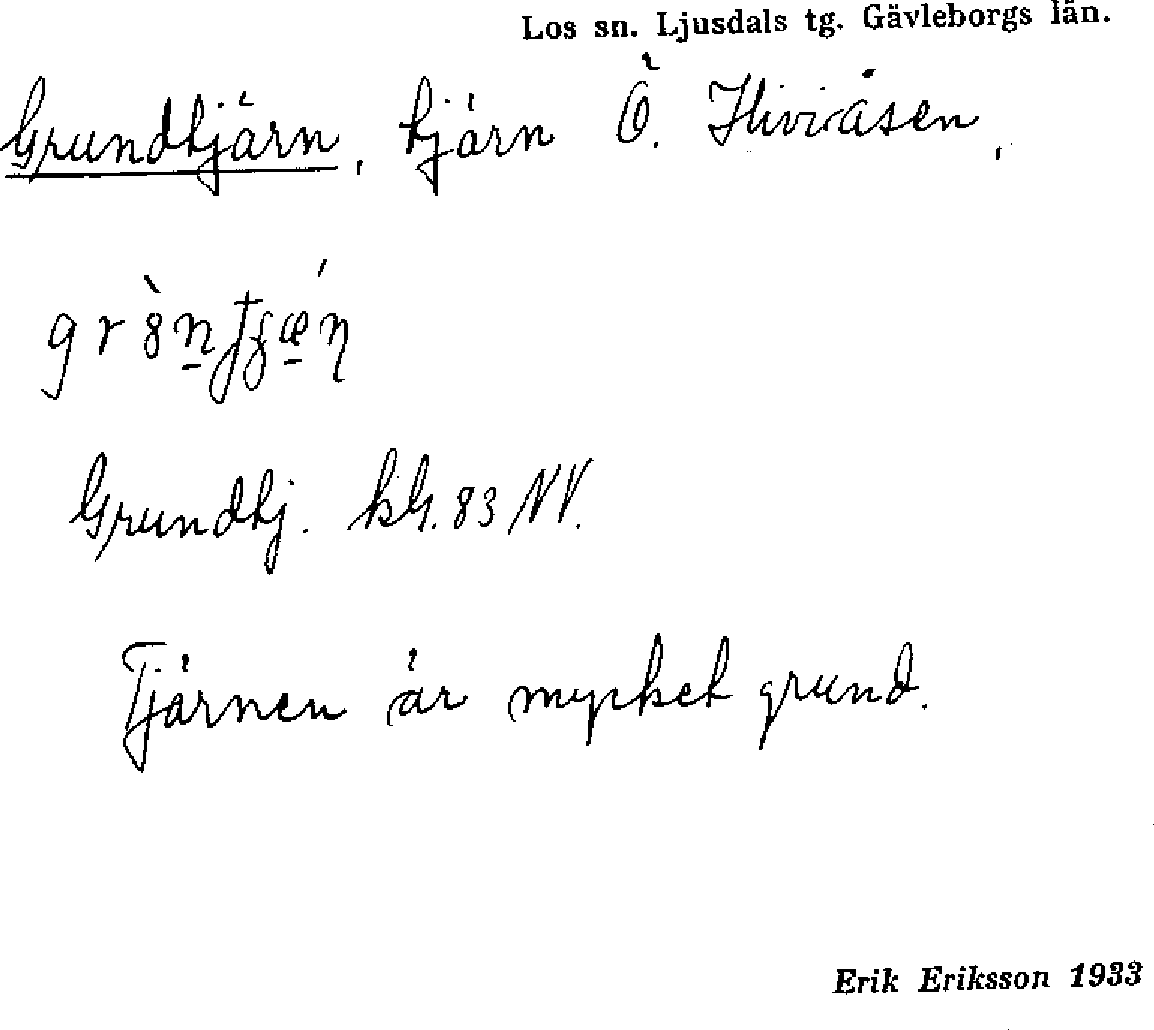 Los sn. Ljusdals tg. Gävleborgs län.
Grundtjärn, tjärn Ö.
Grundtj. kbl. 83 NV.
Tjärnen är mycket grund.
Erik Eriksson 1933